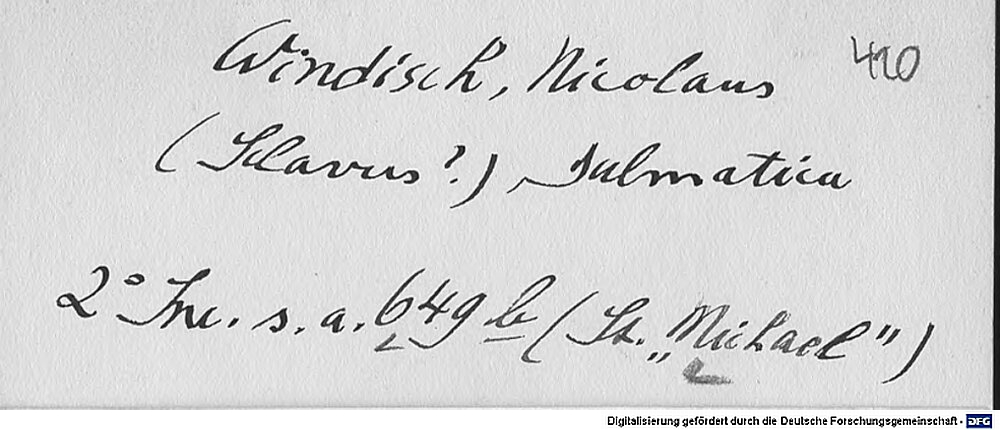 Windisch, Nicolaus 420
(Sclavus?), Dalmatica
2° Inc. s. a. 649 b (St. „Michael")
Digitalisierung gefördert durch die Deutsche Forschungsgemeinschaft - DFG